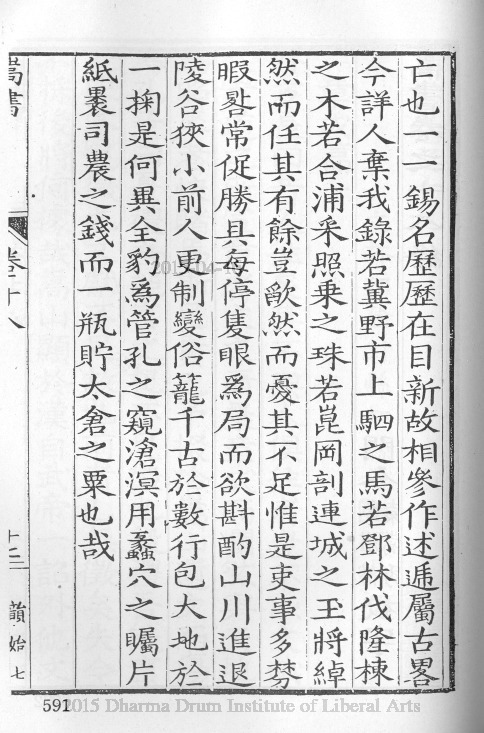 亡也一一錫名歷歷在目新故相參作述遞屬古畧
今詳人棄我錄若冀野市上駟之馬若鄧林伐隆棟
之木若合浦采照乗之珠若崑岡剖連城之玉將綽
然而任其有餘豈歉然而憂其不足惟是吏事多棼
暇晷常促勝具每停隻眼為局而欲斟酌山川進退
陵谷狹小前人更制變俗籠千古於數行包大地於
一掬是何異全豹為管孔之窺滄溟用蠡穴之矚片
紙褁司農之錢而一瓶貯太倉之粟也哉
嵩書
卷十八
十三
韻始七
591
2015 Dharma Drum Institute of Liberal Arts